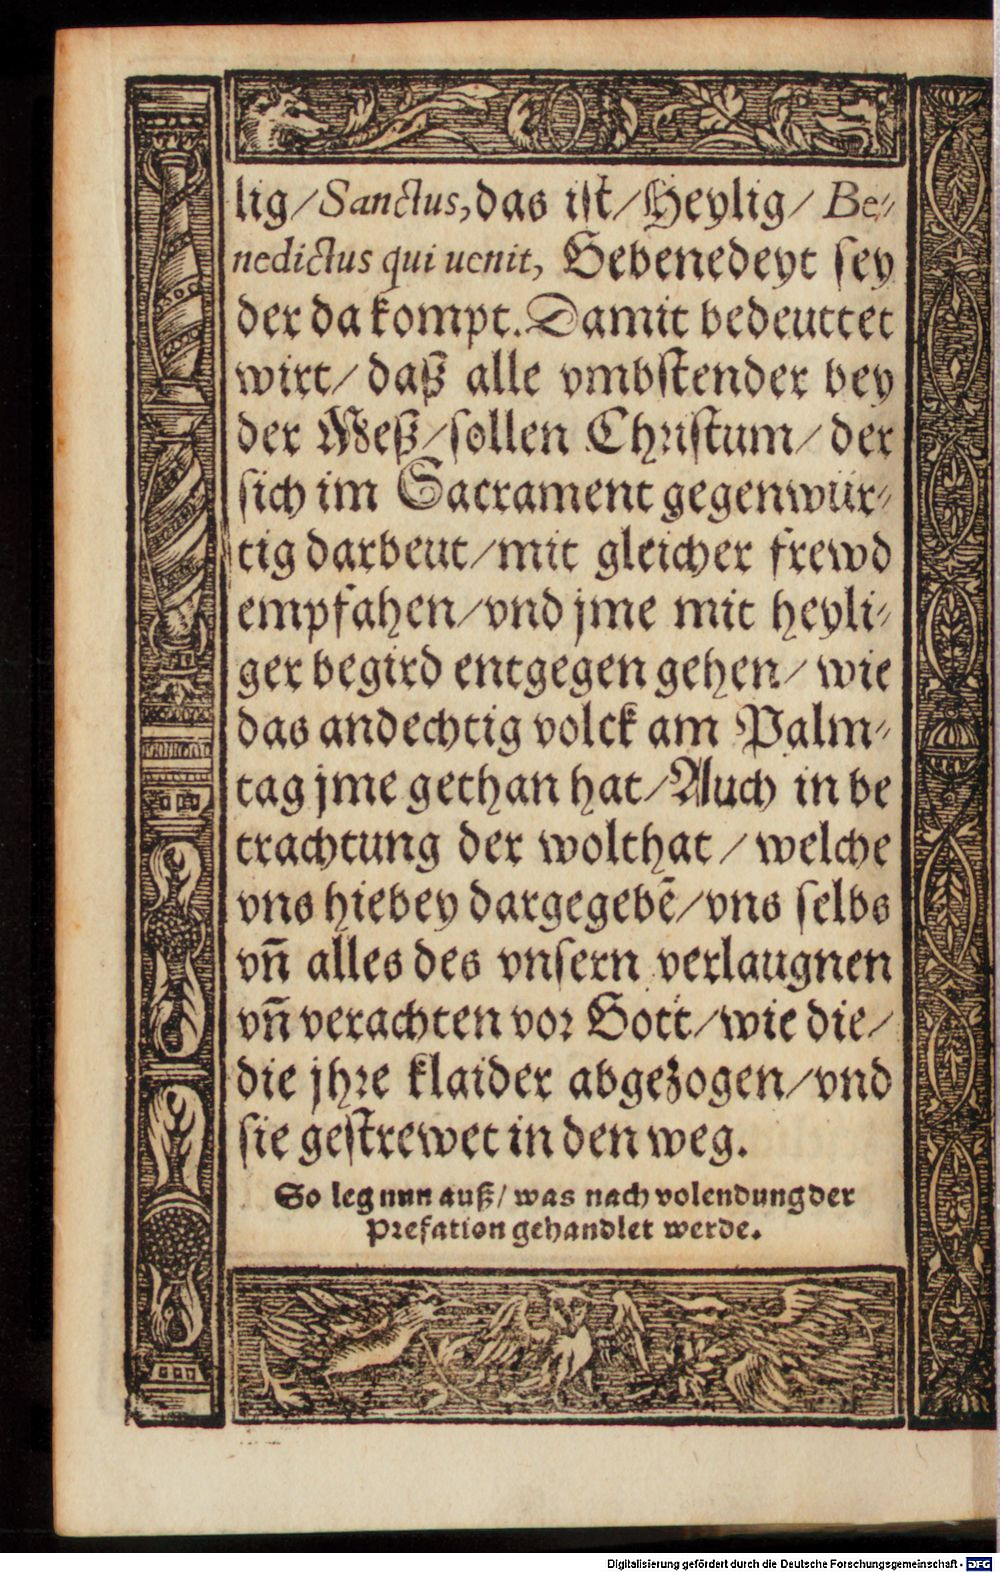 lig/Sanctus, das iſt/Heylig/ Be⸗
nedictus qui uenit, Gebenedeyt ſey
der da kompt. Damit bedeuttet
wirt/ daß alle vmbſtender bey
der Meß/ſollen Chriſtum/ der
ſich im Sacrament gegenwür⸗
tig darbeut/mit gleicher frewd
empfahen/vnd jme mit heyli⸗
ger begird entgegen gehen/ wie
das andechtig volck am Palm⸗
tag jme gethan hat/Auch in be
trachtung der wolthat / welche
vns hiebey dargegebē/vns ſelbs
vñ alles des vnſern verlaugnen
vñ verachten vor Gott/wie die/
die jhre klaider abgezogen/vnd
ſie geſtrewet in den weg.
So leg nun auß/ was nach volendung der
Prefation gehandlet werde.
Digitalisierung gefördert durch die Deutsche Forschungsgemeinschaft - DFG